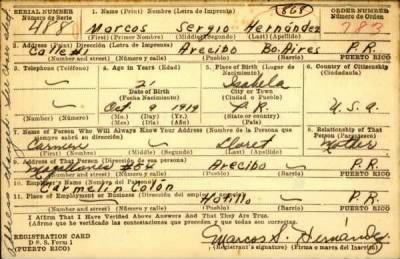 SERIAL NUMBER 1. Name (Print) Nombre (Letra de Imprenta) 868 ORDER NUMBER
Número de Serie Número de Orden
488 Marcos Sergio Hernández
(First) (Primer Nombre) (Middle) (Segundo) (Last) (Apellido)
2. Address (Print) Dirección (Letra de Imprenta)
Calle #1 Arecibo Bo. Aires P.R.
3. Telephone (Teléfono) 4. Age in Years (Edad) 5. Place of Birth (Lugar de Nacimiento) 6. Country of Citizenship (Ciudadanía)
21 Isabela
Date of Birth City or Town
(Fecha Nacimiento) (Ciudad o Pueblo)
Oct 9 1919 P.R. U.S.A.
(Mo.) (Day) (Yr.) State or country
(Mes) (Día) (Año) (Estado o país)
7. Name of Person Who Will Always Know Your Address (Nombre de la Persona que siempre sabrá su dirección) 8. Relationship of That Person (Parentesco)
Carmen Lloret Mother
(First) (Nombre) (Middle) (Segundo) (Last) (Apellido)
9. Address of That Person (Dirección de esa persona)
Arecibo P.R.
10. Employer's Name (Nombre del Patrono)
Carmelin Colón
11. Place of Employment or Business (Dirección del empleo o negocio)
Hatillo P.R.
I Affirm That I Have Verified Above Answers And That They Are True.
(Afirmo que he verificado las contestaciones que preceden y que todas son correctas.
REGISTRATION CARD
D. S. S. Form 1
(PUERTO RICO)
Marcos S. Hernández
Registrant's signature) (Firma o marca del Inscrito)